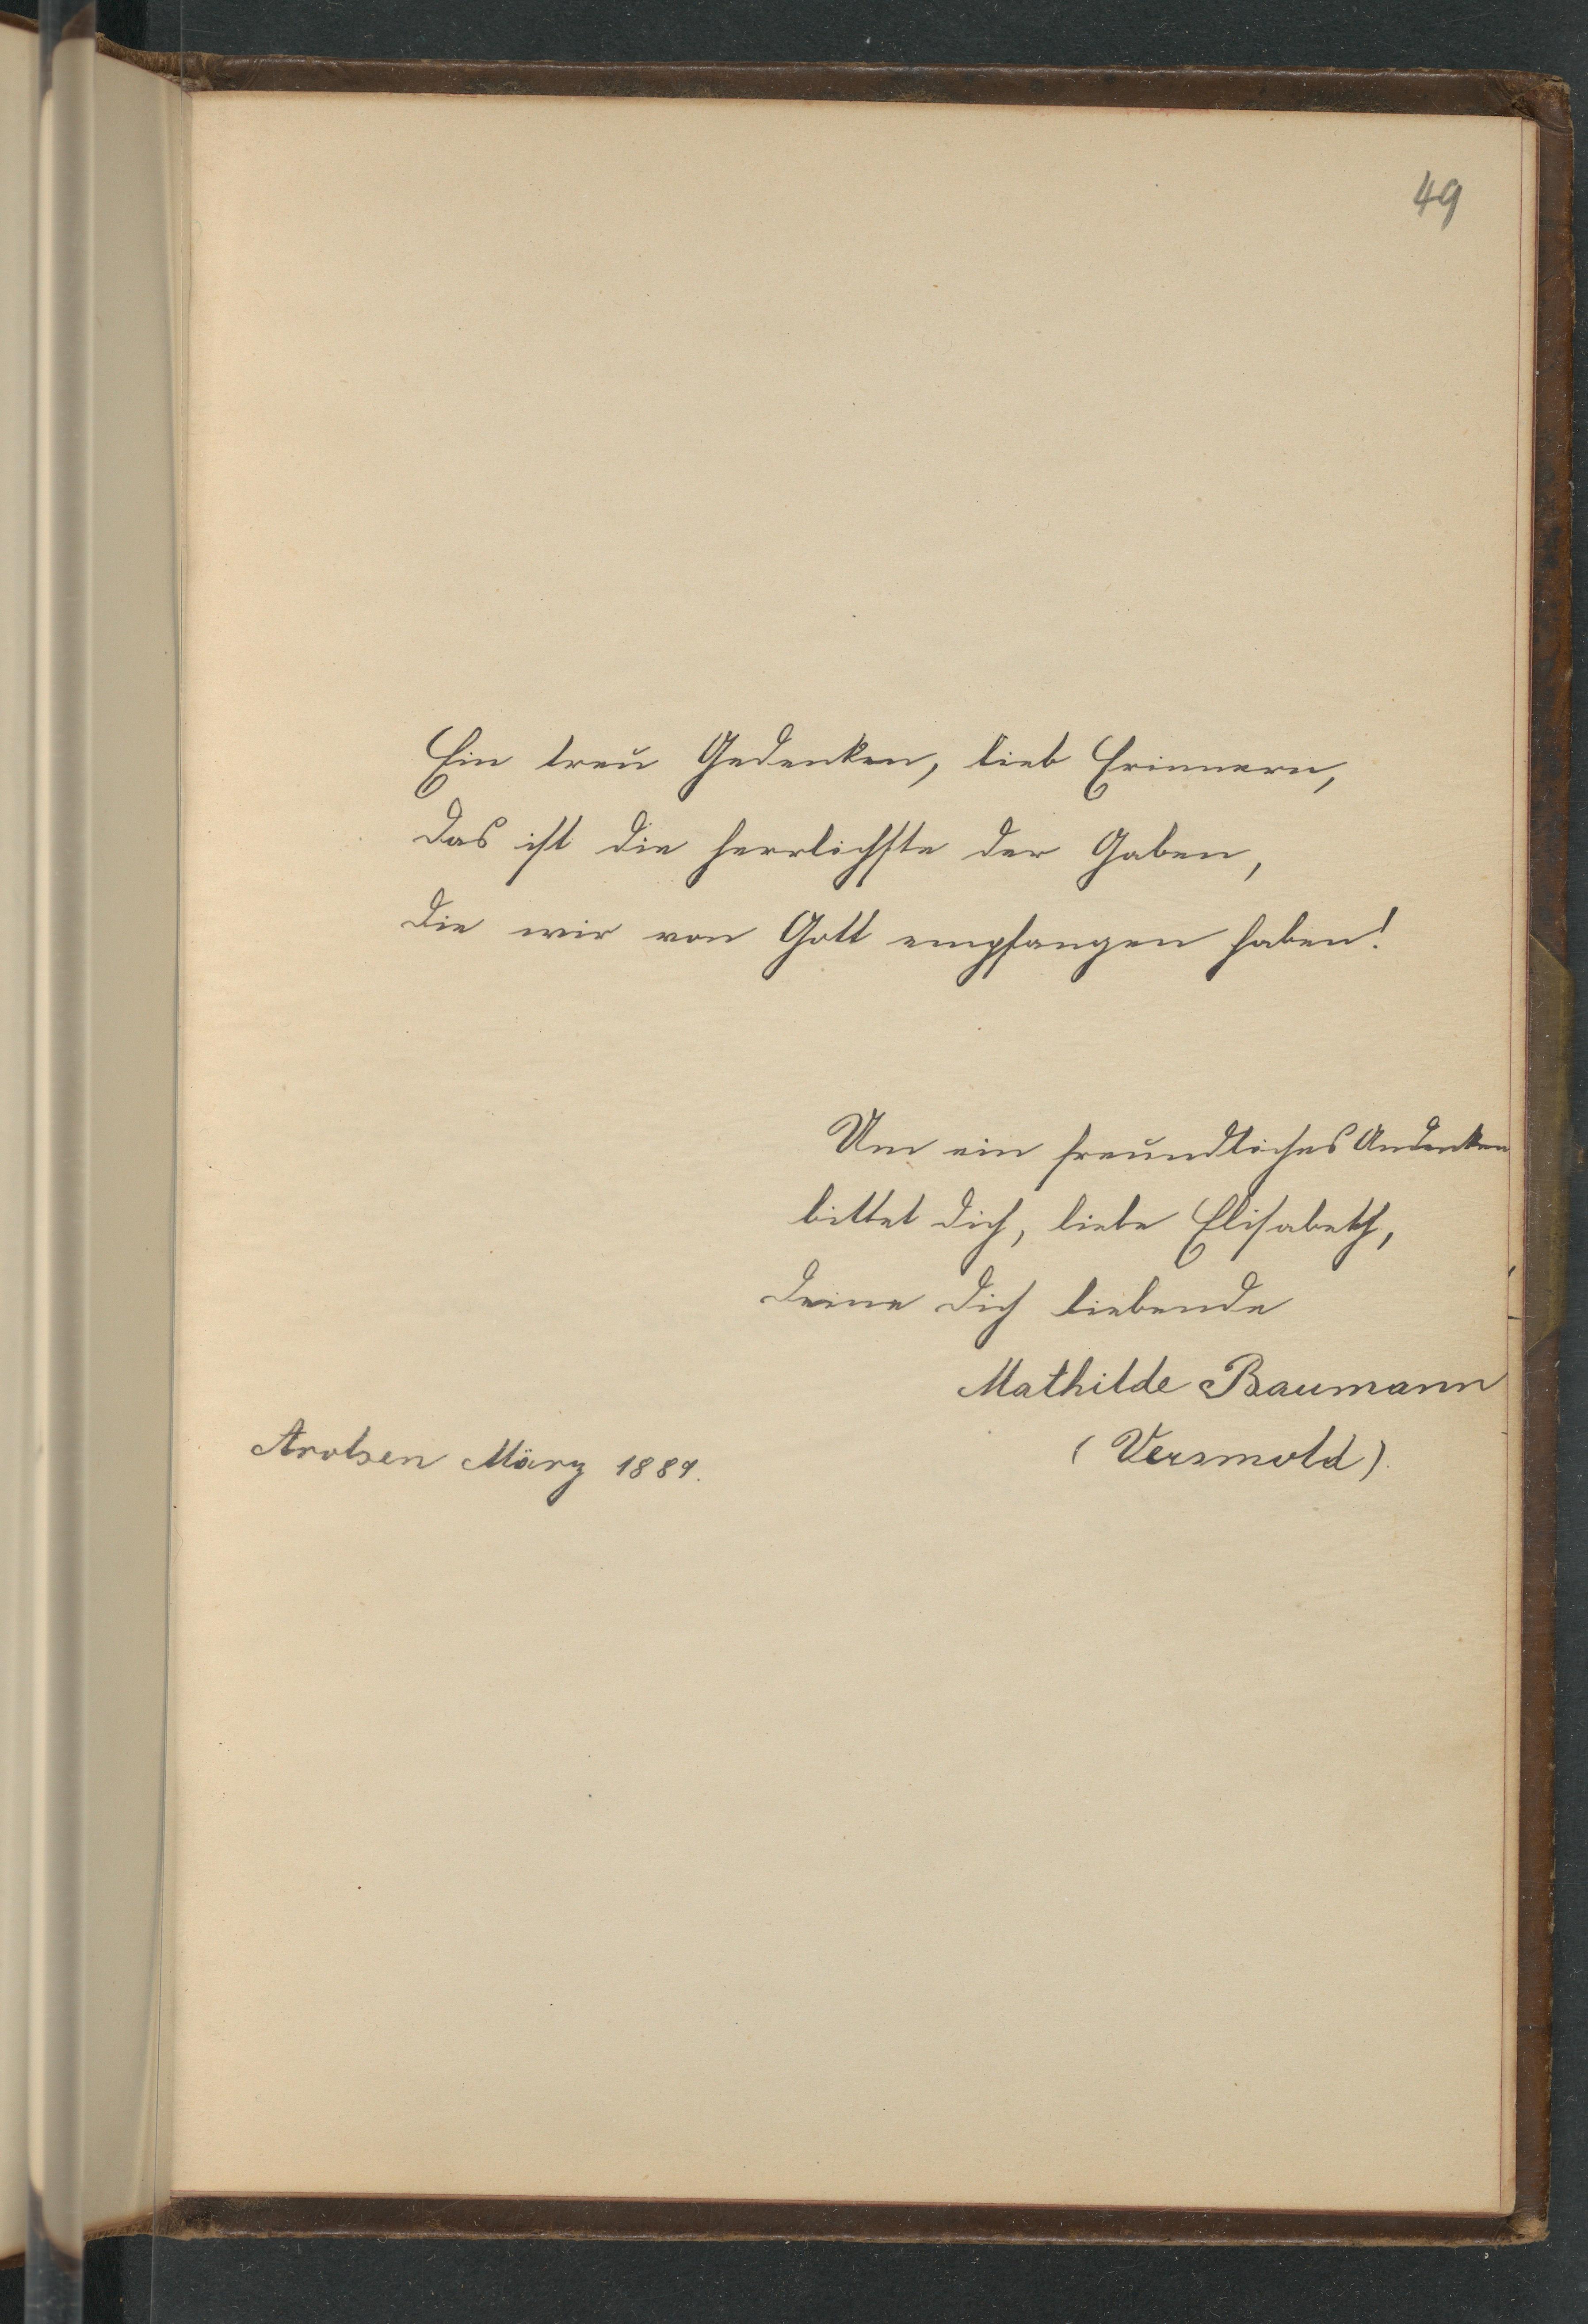 49
Ein treu Gedenken, lieb Erinnern,
das ist die herrlichste der Gaben,
die wir von Gott empfangen haben!
Um ein freundliches Andenken
bittet dich, liebe Elisabeth,
deine dich liebende
Mathilde Baumann
(Versmold).
Arolsen März 1889.